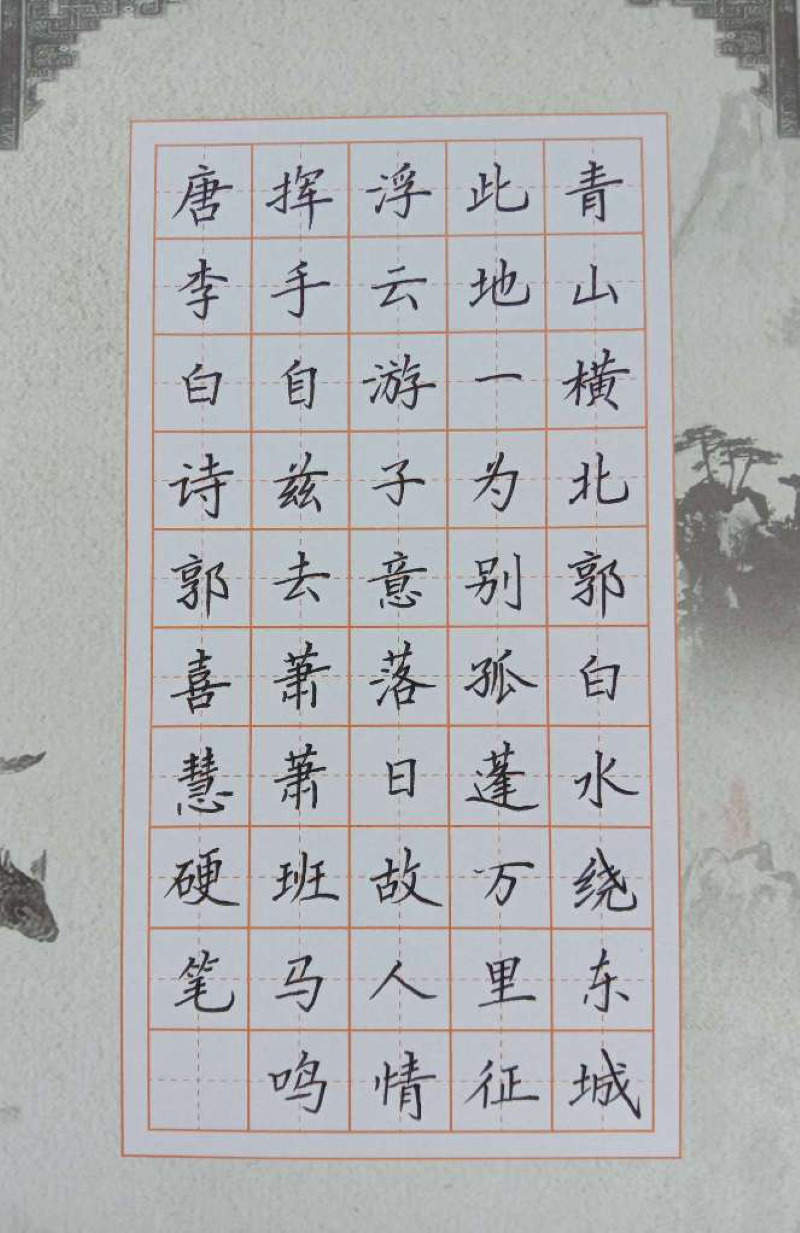 青山横北郭白水绕东城
此地一为别孤蓬万里征
浮云游子意落日故人情
挥手自兹去萧萧班马鸣
唐李白诗郭喜慧硬笔